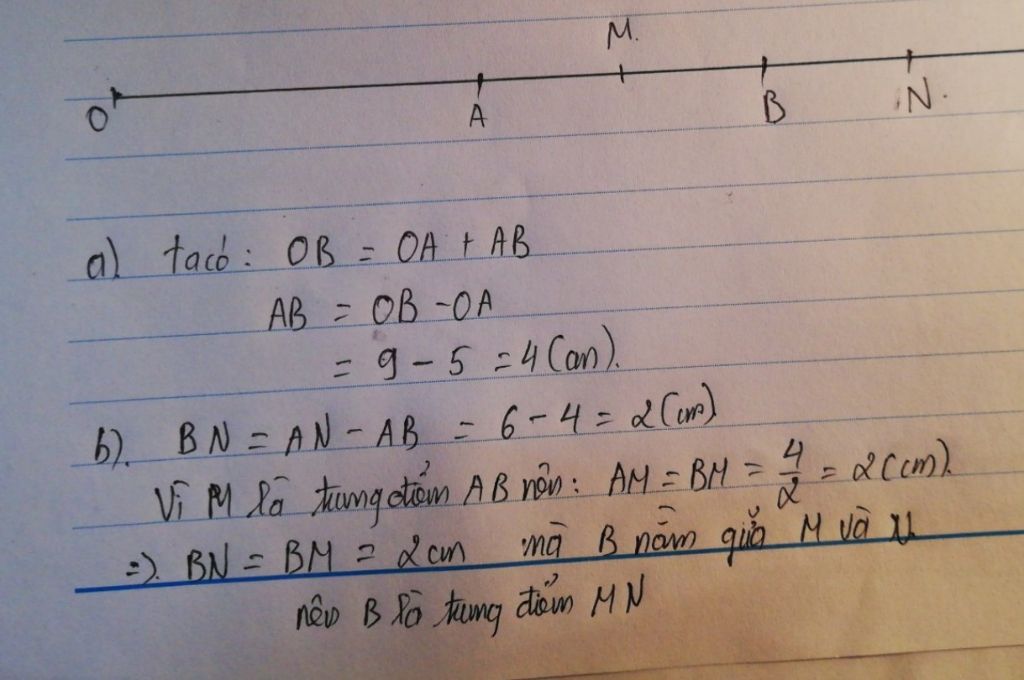 M.
O A B N.
a) ta có: OB = OA + AB
AB = OB - OA
= 9 - 5 = 4 (cm).
b). BN = AN - AB = 6 - 4 = 2 (cm)
Vì M là trung điểm AB nên: AM = BM = 4/2 = 2 (cm).
=). BN = BM = 2 cm mà B nằm giữa M và N
nên B là trung điểm MN